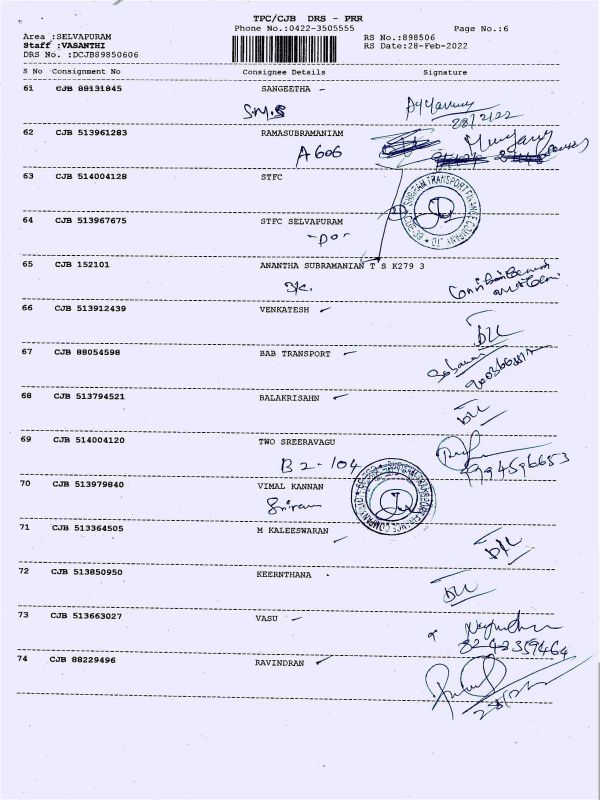 TPC/CJB DRS - PRR
Phone No.:0422-3505555 Page No.:6
Area :SELVAPURAM
Staff :VASANTHI RS No.:898506
DRS No. :DCJB89850606 RS Date:28-Feb-2022
S No Consignment No Consignee Details Signature
61 CJB 88131845 SANGEETHA -
SMS
28/2/22
62 CJB 513961283 RAMASUBRAMANIAM
A 606
63 CJB 514004128 STFC
64 CJB 513967675 STFC SELVAPURAM
-DO-
65 CJB 152101 ANANTHA SUBRAMANIAN T S K279 3
66 CJB 513912439 VENKATESH
67 CJB 88054598 BAB TRANSPORT
68 CJB 513794521 BALAKRISAHN
69 CJB 514004120 TWO SREERAVAGU
B2-104 9994596653
70 CJB 513979840 VIMAL KANNAN
Sriram
71 CJB 513364505 M KALEESWARAN
72 CJB 513850950 KEERNTHANA
73 CJB 513663027 VASU
74 CJB 88229496 RAVINDRAN